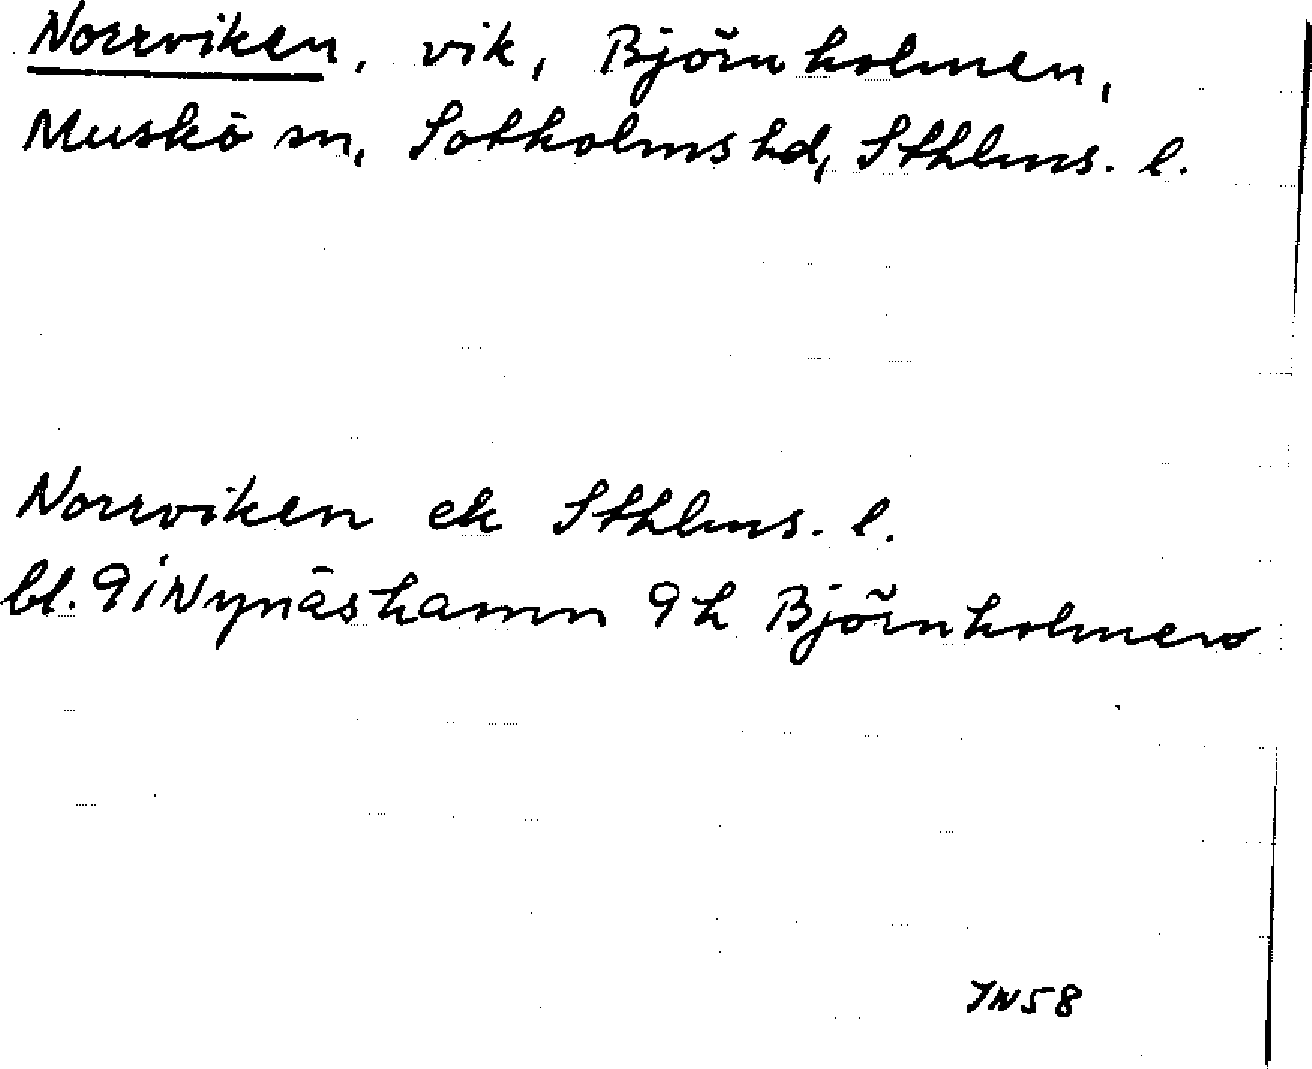 Norrviken, vik, Björnholmen,
Muskö sn, Sotholms hd, Sthlms. l.
Norrviken ek Sthlms. l.
bl. 9i Nynäshamn 9h Björnholmen